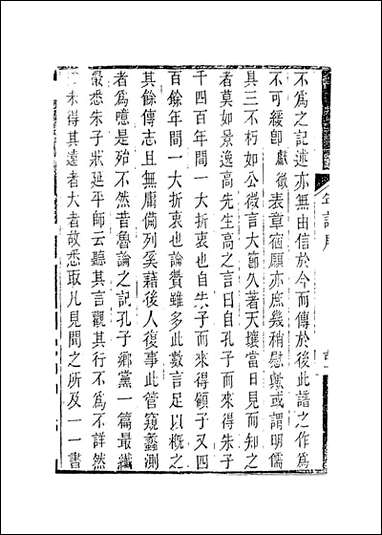 不為之記述亦無由信於今而傳於後此譜之作為
不可緩卽獻徵表章宿願亦庶幾稍慰歟或謂明儒
具三不朽如公微言大節久著天壤當日見而知之
者莫如景逸高先生高之言曰自孔子而來得朱子
千四百年間一大折衷也自朱子而來得顧子又四
百餘年間一大折衷也論贊雖多此數言足以概之
其餘傳志且無庸備列奚藉後人復事此管窺蠡測
者為噫是殆不然昔魯論之記孔子鄉黨一篇最纖
最悉朱子狀延平師云聽其言觀其行不為不詳然
未得其遠者大者故悉取凡見聞之所及一一書
年譜序